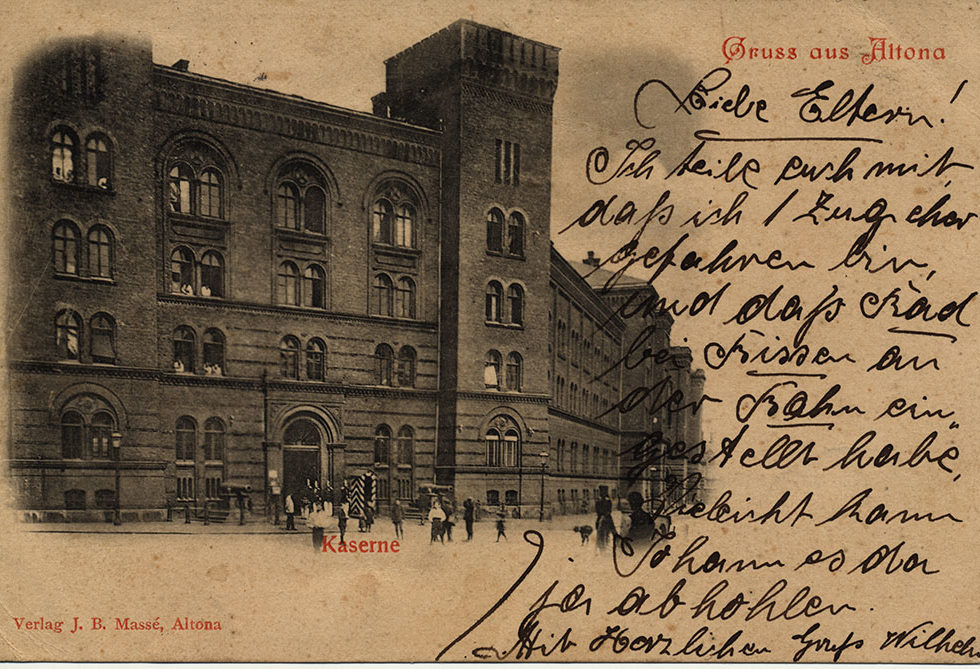 Gruss aus Altona
Liebe Eltern!
Ich teile euch mit,
daß ich 1 Zug eher
gefahren bin,
und daß Rad
bei Rissen an
der Bahn ein„
gestellt habe,
Vieleicht kann
Johann es da
ja abhohlen.
Mit Herzlichen Gruß Wilhelm
Kaserne
Verlag J. B. Massé, Altona